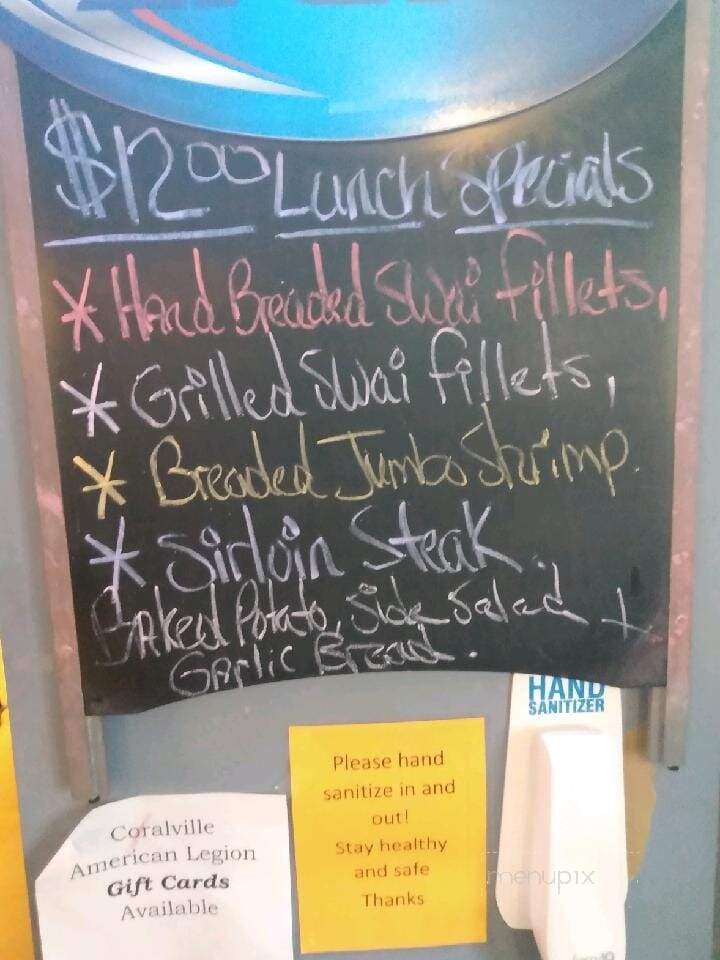 $12.00 Lunch Specials
* Hand Breaded Swai fillets,
* Grilled Swai fillets,
* Breaded Jumbo Shrimp.
* Sirloin Steak.
Baked Potato, Side Salad +
Garlic Bread.
HAND
SANITIZER
Please hand
sanitize in and
out!
Stay healthy
and safe
Thanks
Coralville
American Legion
Gift Cards
Available
menupix